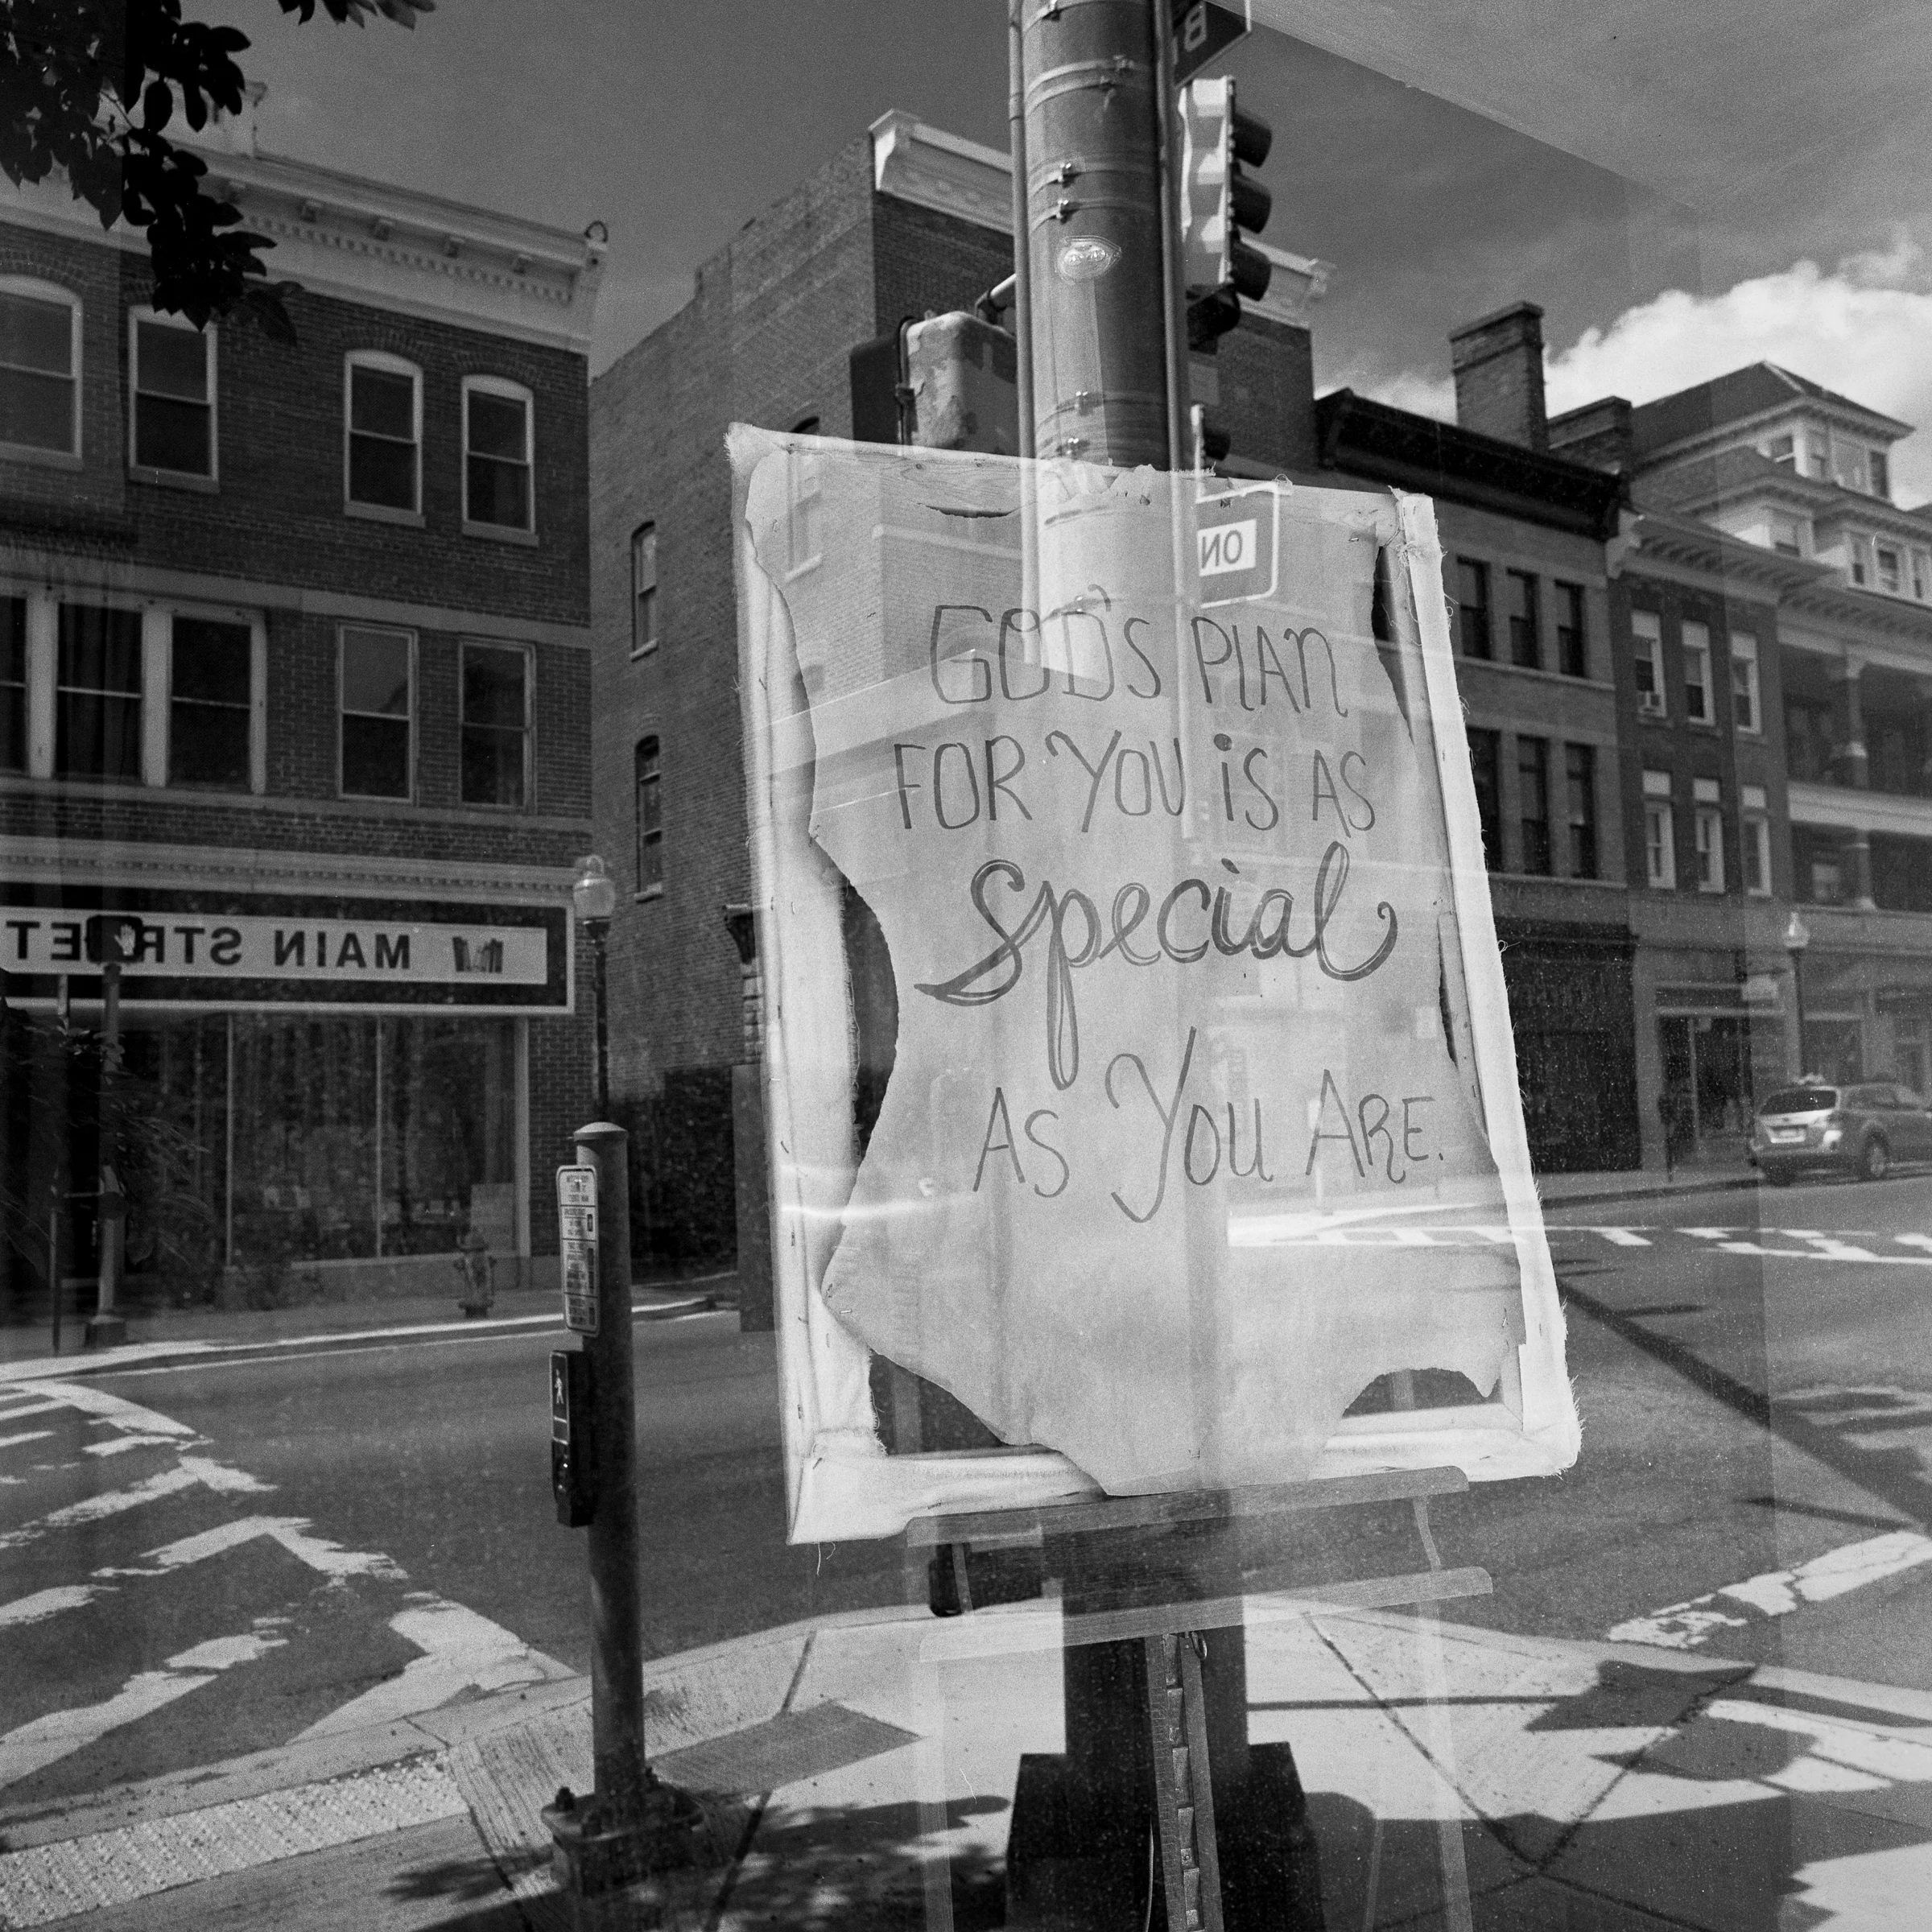 GOD'S PLAN
FOR YOU iS AS
Special
AS YOU ARE.
MAIN STREET
NO